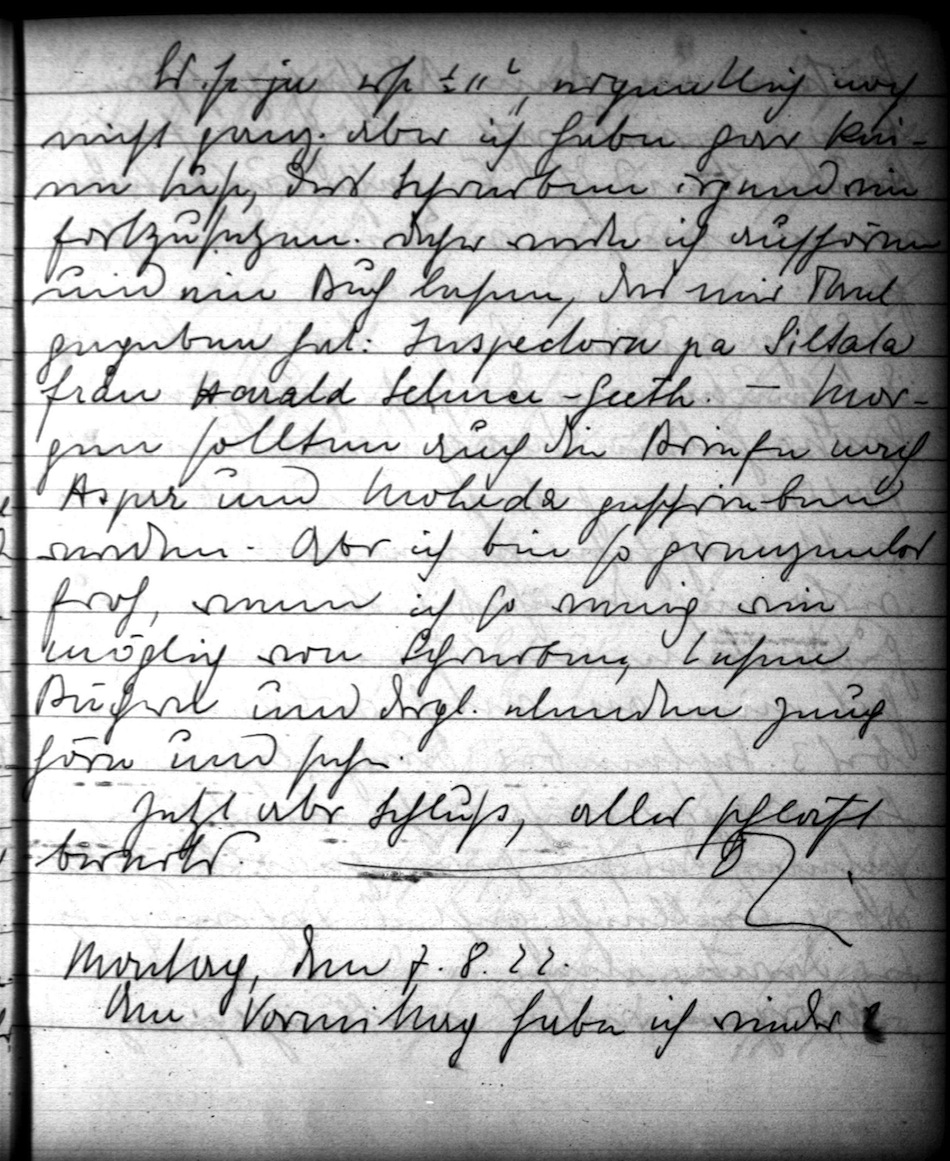 Es ist ja erst ½11², eigentlich noch
nicht ganz, aber ich habe gar kei-
ne Lust, das Schreiben irgendwie
fortzusetzen. Daher werde ich aufhören
und ein Buch lesen, das mir Paul
gegeben hat: Inspectorn pa Siltala
från Harald Selmer-Geeth. — Mor-
gen sollten auch die Briefe nach
Asper und Moheda geschrieben
werden. Aber ich bin so grenzenlos
froh, wenn ich so wenig wie
möglich von Schreiben, Lesen
Büchern und dergl. elenden Zeug
höre und sehe.
Jetzt aber Schluß, alles schläft
bereits.
Montag, den 7. 8. 22.
Am Vormittag habe ich wieder